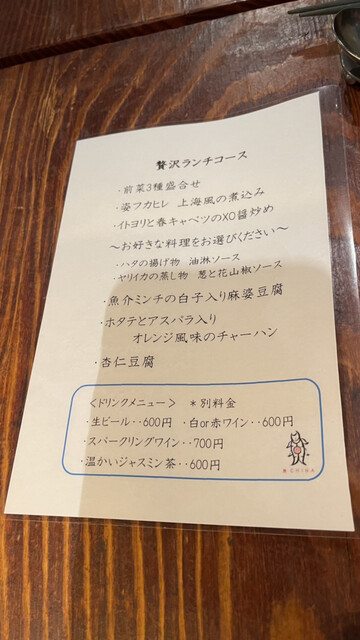 贅沢ランチコース
・前菜3種盛合せ
・姿フカヒレ 上海風の煮込み
・イトヨリと春キャベツのXO醤炒め
～お好きな料理をお選びください～
・ハタの揚げ物 油淋ソース
・ヤリイカの蒸し物 葱と花山椒ソース
・魚介ミンチの白子入り麻婆豆腐
・ホタテとアスパラ入り
オレンジ風味のチャーハン
・杏仁豆腐
＜ドリンクメニュー＞ ＊別料金
・生ビール‥600円 ・白or赤ワイン‥600円
・スパークリングワイン‥700円
・温かいジャスミン茶‥600円